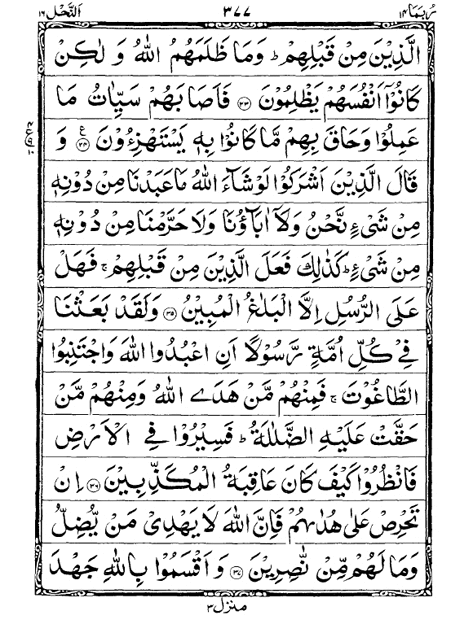 رُبَمَا ١٤ ٣٧٧ اَلنَّحْل ١٦
الَّذِيْنَ مِنْ قَبْلِهِمْ ؕ وَمَا ظَلَمَهُمُ اللّٰهُ وَ لٰكِنْ
كَانُوْۤا اَنْفُسَهُمْ يَظْلِمُوْنَ ﴿۳۳﴾ فَاَصَابَهُمْ سَيِّاٰتُ مَا
عَمِلُوْا وَحَاقَ بِهِمْ مَّا كَانُوْا بِهٖ يَسْتَهْزِءُوْنَ ﴿۳۴﴾ ع وَ
قَالَ الَّذِيْنَ اَشْرَكُوْا لَوْ شَآءَ اللّٰهُ مَا عَبَدْنَا مِنْ دُوْنِهٖ
مِنْ شَیْءٍ نَّحْنُ وَلَاۤ اٰبَآؤُنَا وَلَا حَرَّمْنَا مِنْ دُوْنِهٖ
مِنْ شَیْءٍ ؕ كَذٰلِكَ فَعَلَ الَّذِيْنَ مِنْ قَبْلِهِمْ ۚ فَهَلْ
عَلَى الرُّسُلِ اِلَّا الْبَلٰغُ الْمُبِيْنُ ﴿۳۵﴾ وَلَقَدْ بَعَثْنَا
فِیْ كُلِّ اُمَّةٍ رَّسُوْلًا اَنِ اعْبُدُوا اللّٰهَ وَاجْتَنِبُوا
الطَّاغُوْتَ ۚ فَمِنْهُمْ مَّنْ هَدَی اللّٰهُ وَمِنْهُمْ مَّنْ
حَقَّتْ عَلَيْهِ الضَّلٰلَةُ ؕ فَسِيْرُوْا فِی الْاَرْضِ
فَانْظُرُوْا كَيْفَ كَانَ عَاقِبَةُ الْمُكَذِّبِيْنَ ﴿۳۶﴾ اِنْ
تَحْرِصْ عَلٰی هُدٰىهُمْ فَاِنَّ اللّٰهَ لَا يَهْدِیْ مَنْ يُّضِلُّ
وَمَا لَهُمْ مِّنْ نّٰصِرِيْنَ ﴿۳۷﴾ وَ اَقْسَمُوْا بِاللّٰهِ جَهْدَ
منزل ٣